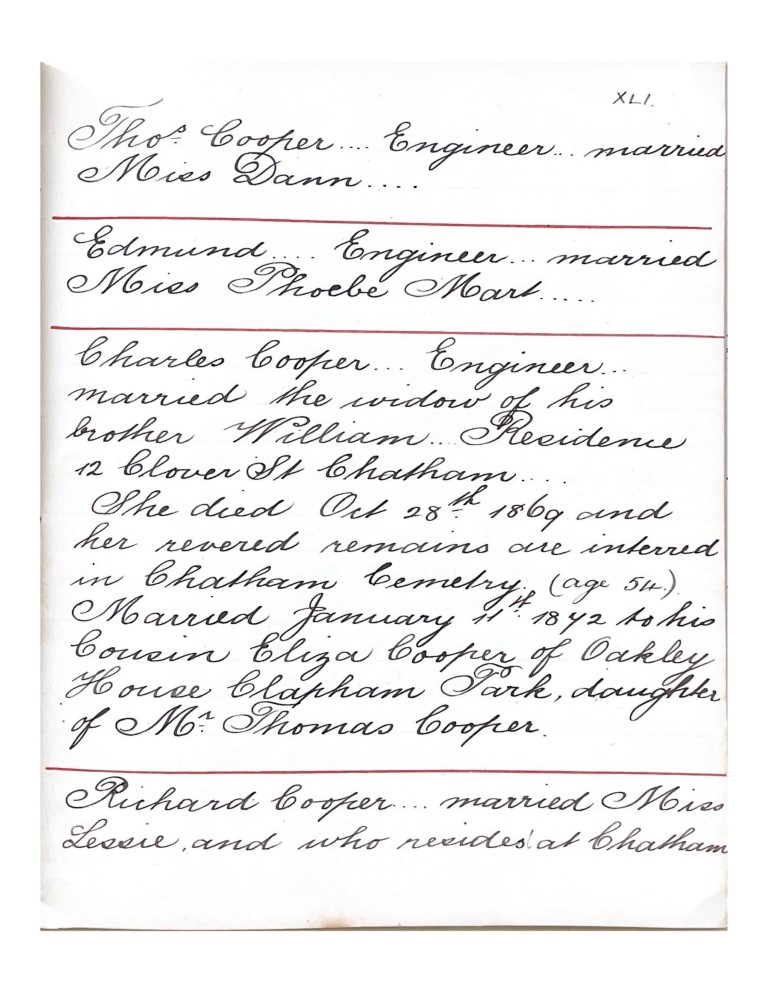 XLI.
Thos. Cooper.... Engineer... married
Miss Dann....
Edmund.... Engineer... married
Miss Phoebe Mart.....
Charles Cooper... Engineer...
married the widow of his
brother William... Residence
12 Clover St Chatham....
She died Oct 28th 1869 and
her revered remains are interred
in Chatham Cemetry. (age 54.)
Married January 11th. 1872 to his
Cousin Eliza Cooper of Oakley
House Clapham Park, daughter
of Mr. Thomas Cooper.
Richard Cooper.... married Miss
Lessie, and who resides at Chatham